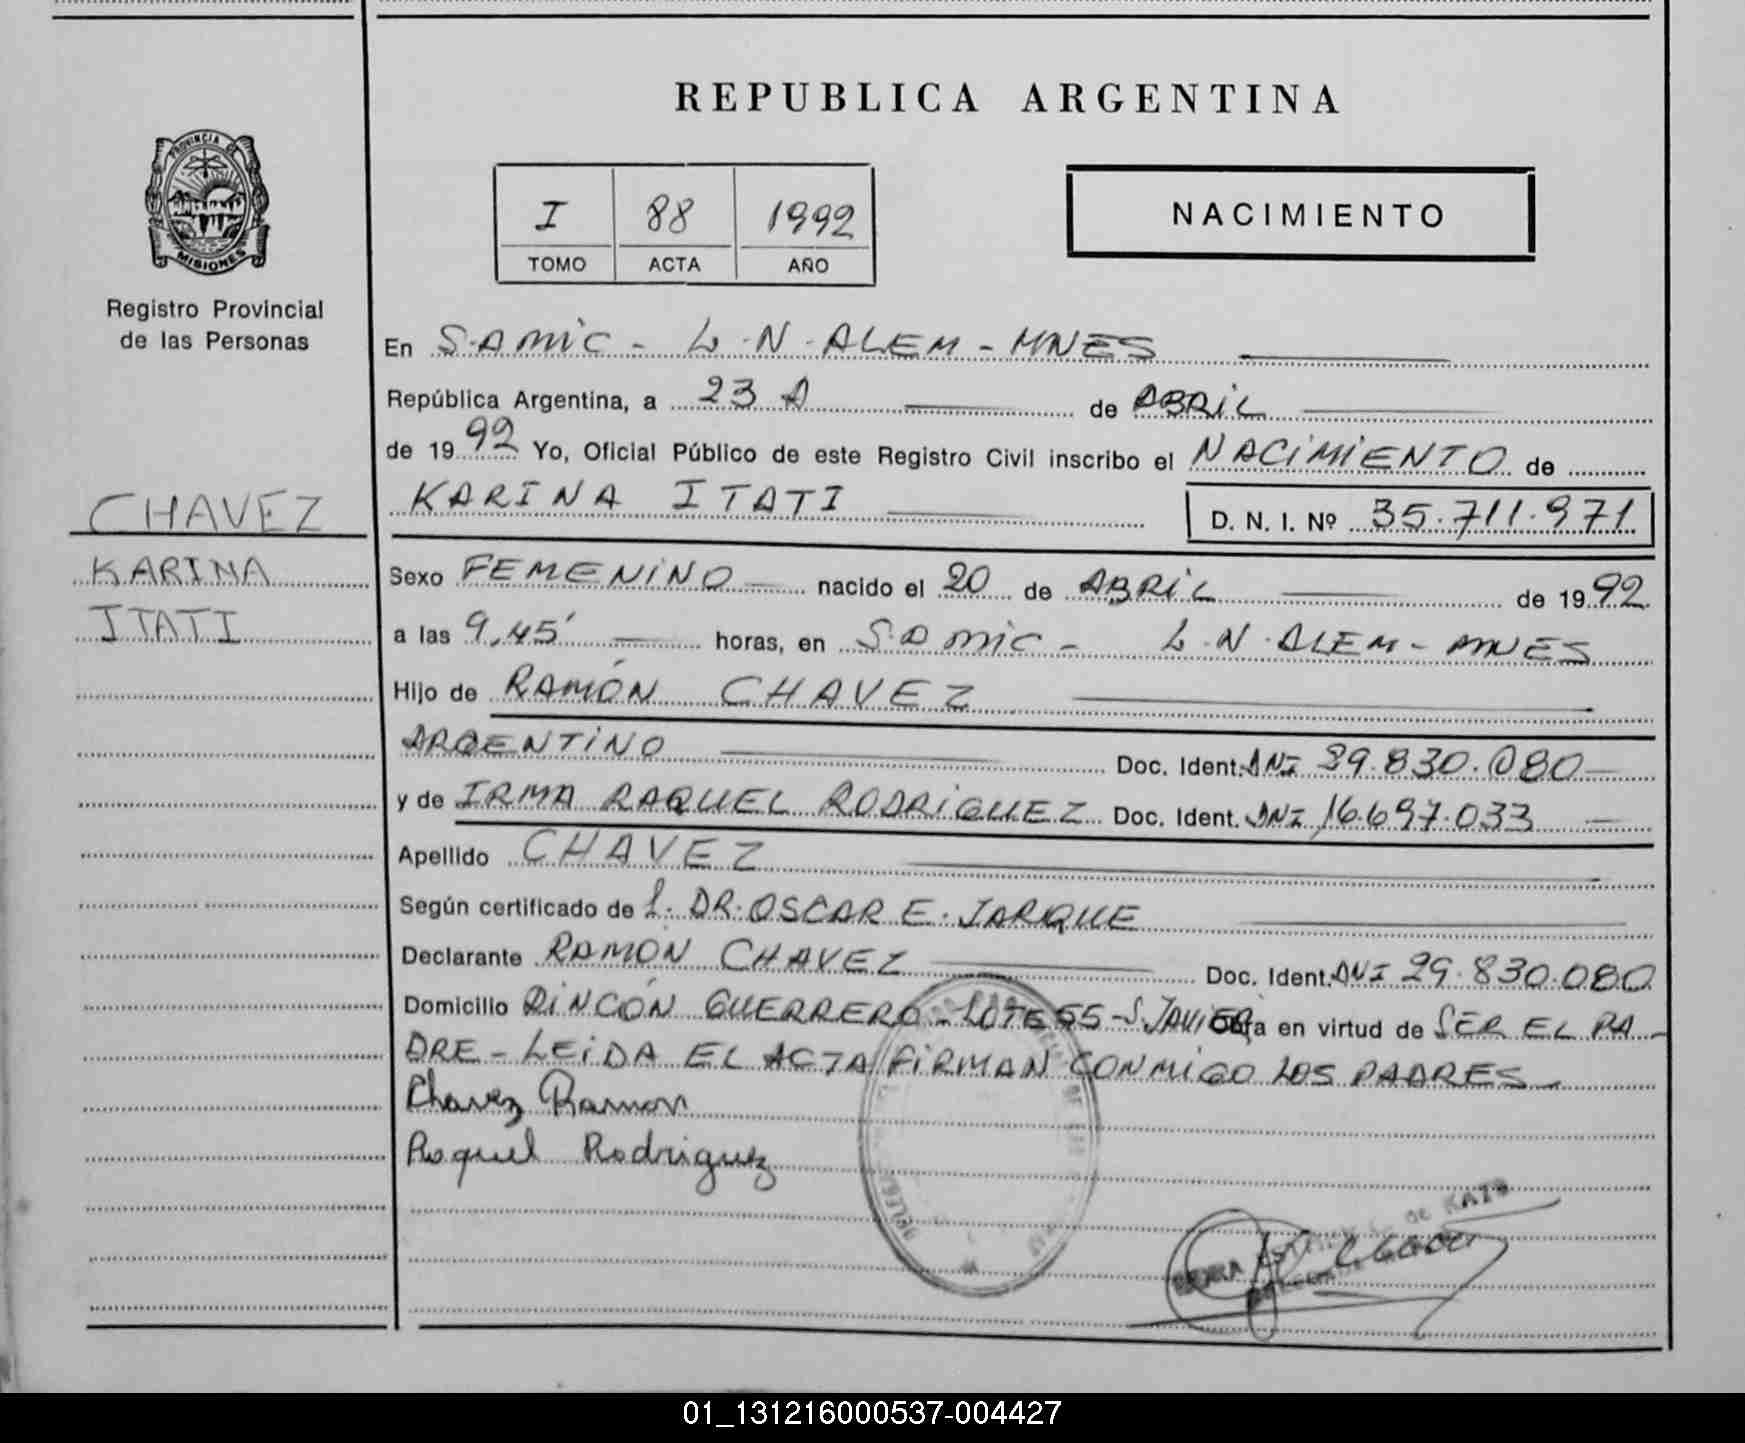 REPUBLICA ARGENTINA
PROVINCIA DE
MISIONES
Registro Provincial
de las Personas
I 88 1992
TOMO ACTA AÑO
NACIMIENTO
En S.AMIC - L.N.ALEM - MNES
República Argentina, a 23 A de ABRIL
de 1992 Yo, Oficial Público de este Registro Civil inscribo el NACIMIENTO de
KARINA ITATI D. N. I. Nº 35.711.971
CHAVEZ
KARINA
ITATI
Sexo FEMENINO nacido el 20 de ABRIL de 1992
a las 9,45' horas, en S.AMIC - L.N.ALEM - MNES
Hijo de RAMÓN CHAVEZ
ARGENTINO Doc. Ident. DNI 29.830.080
y de IRMA RAQUEL RODRIGUEZ Doc. Ident. DNI 16.697.033
Apellido CHAVEZ
Según certificado de L. DR. OSCAR E. JARQUE
Declarante RAMÓN CHAVEZ Doc. Ident. DNI 29.830.080
Domicilio RINCÓN GUERRERO - LOTE 55 - S. JAVIER Obra en virtud de SER EL PA-
DRE - LEIDA EL ACTA FIRMAN CONMIGO LOS PADRES
Chavez Ramon
Raquel Rodriguez
de KATZ
01_131216000537-004427